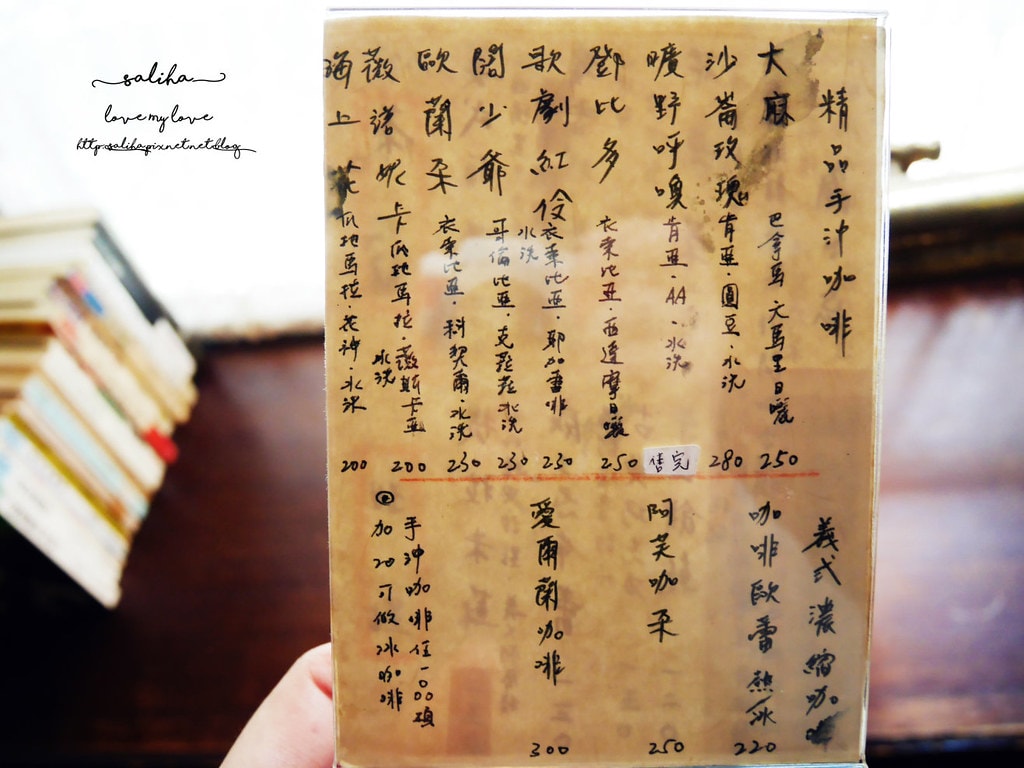 saliha
love my love
http:saliha.pixnet.net/blog
精品手沖咖啡
大麻 巴拿馬 大馬里日曬 250
沙崙玫瑰 肯亞·圓豆·水洗 280
曠野呼喚 肯亞·AA·水洗 售完
鄧比多 衣索比亞·西達摩日曬 250
歌劇紅伶 衣索比亞·耶加雪啡 水洗 230
闊少爺 哥倫比亞·克蘿蘿水洗 230
歐蘭朵 衣索比亞·科契爾·水洗 230
薇諾妮 卡瓜地馬拉·薇斯卡亞 水洗 200
海上花 瓜地馬拉·花神·水洗 200
義式濃縮咖啡
咖啡歐蕾 熱/冰 220
阿芙咖朵 250
愛爾蘭咖啡 300
手沖咖啡任一〇〇碩
加20可做冰咖啡